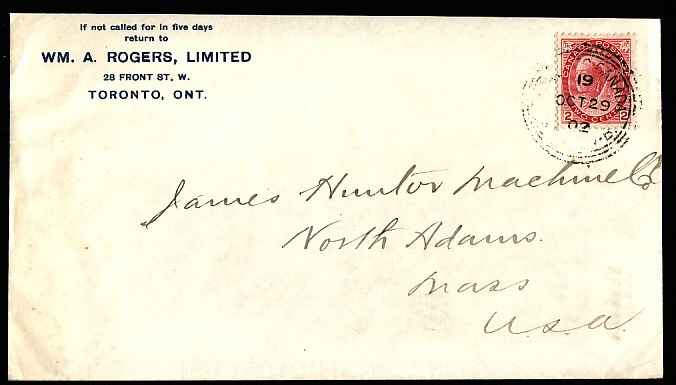 If not called for in five days
return to
WM. A. ROGERS, LIMITED
28 FRONT ST. W.
TORONTO, ONT.
CANADA POSTAGE
2 TWO CENTS 2
CANADA
19
OCT 29
02
James Hunter Machine Co
North Adams.
Mass
U.S.A.